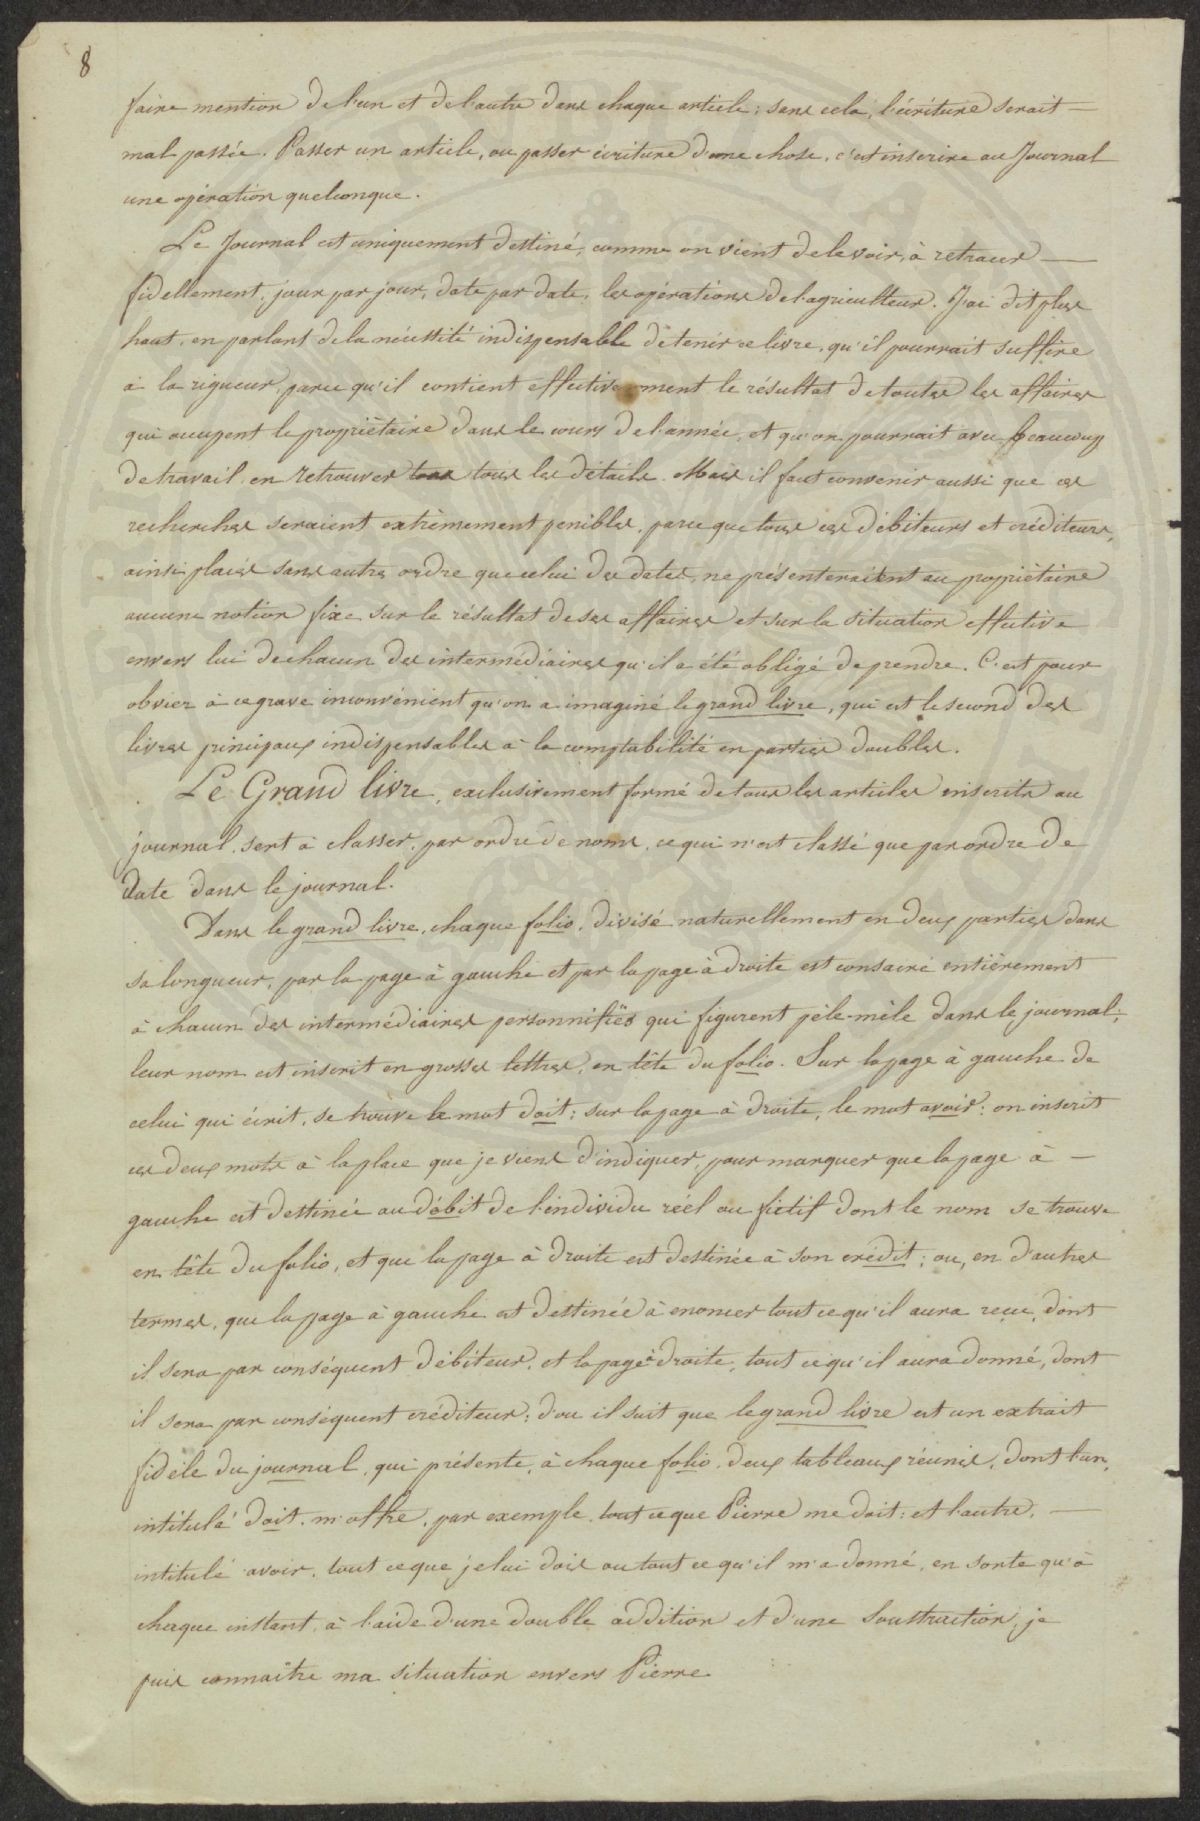 8
faire mention de l'un et de l'autre dans chaque article; sans cela, l'écriture serait —
mal passée. Passer un article, ou passer écriture d'une chose, c'est inscrire au Journal
une opération quelconque.
Le Journal est uniquement destiné, comme on vient de le voir, à retracer —
fidellement, jour par jour, date par date, les opérations de l'agriculteur. J'ai dit plus
haut, en parlant de la nécessité indispensable de tenir ce livre, qu'il pourrait suffire
à la rigueur, parce qu'il contient effectivement le résultat de toutes les affaires
qui occupent le propriétaire dans le cours de l'année, et qu'on pourrait avec beaucoup
de travail en retrouver tous les détails. Mais il faut convenir aussi que ces
recherches seraient extrèmement penibles, parce que tous ces débiteurs et créditeurs,
ainsi placés sans autre ordre que celui des dates, ne présenteraient au propriétaire
aucune notion fixe sur le résultat de ses affaires et sur la situation effective
envers lui de chacun des intermédiaires qu'il a été obligé de prendre. C'est pour
obvier à ce grave inconvénient qu'on a imaginé le grand livre, qui est le second des
livres principaux indispensables à la comptabilité en parties doubles.
Le Grand livre, exclusivement formé de tous les articles inscrits au
journal, sert à classer, par ordre de noms, ce qui n'est classé que par ordre de
date dans le journal.
Dans le grand livre, chaque folio, divisé naturellement en deux parties dans
sa longueur, par la page à gauche et par la page à droite est consacré entièrement
à chacun des intermédiaires personnifiés qui figurent pèle-mèle dans le journal;
leur nom est inscrit en grosses lettres, en tête du folio. Sur la page à gauche de
celui qui écrit, se trouve le mot doit; sur la page à droite, le mot avoir: on inscrit
ces deux mots à la place que je viens d'indiquer, pour marquer que la page à —
gauche est destinée au débit de l'individu réel ou fictif dont le nom se trouve
en tête du folio, et que la page à droite est destinée à son crédit; ou, en d'autres
termes, que la page à gauche est destinée à enoncer tout ce qu'il aura reçu, dont
il sera par conséquent débiteur, et la page à droite, tout ce qu'il aura donné, dont
il sera par conséquent créditeur; d'ou il suit que le grand livre est un extrait
fidèle du journal, qui présente, à chaque folio, deux tableaux réunis, dont l'un,
intitulé doit, m'offre, par exemple, tout ce que Pierre me doit; et l'autre, —
intitulé avoir, tout ce que je lui dois ou tout ce qu'il m'a donné, en sorte qu'à
chaque instant, à l'aide d'une double addition et d'une soustraction, je
puis connaître ma situation envers Pierre